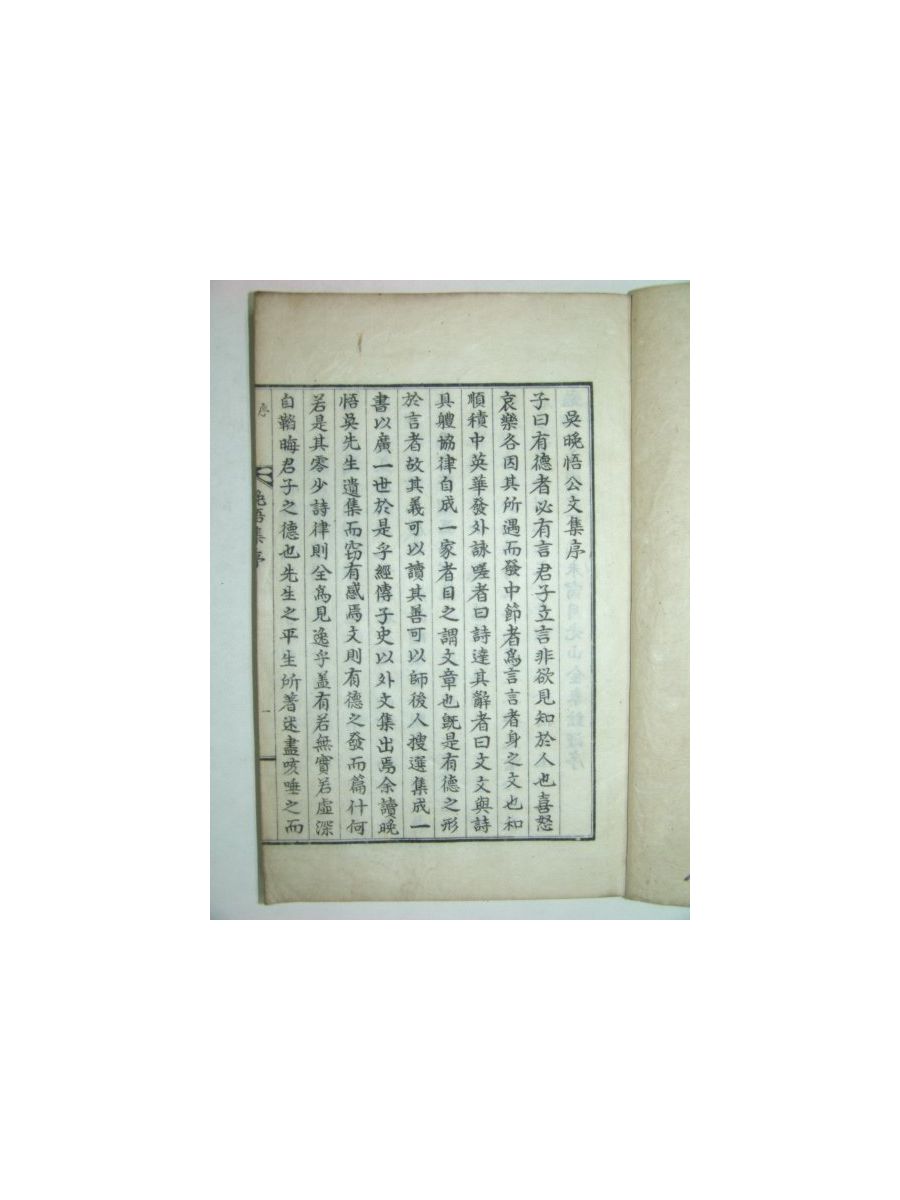 吳晩悟公文集序
子曰有德者必有言君子立言非欲見知於人也喜怒
哀樂各因其所遇而發中節者爲言言者身之文也和
順積中英華發外詠嗟者曰詩達其辭者曰文文與詩
具軆協律自成一家者目之謂文章也旣是有德之形
於言者故其義可以讀其善可以師後人搜選集成一
書以廣一世於是乎經傳子史以外文集出焉余讀晩
悟吳先生遺集而窃有感焉文則有德之發而篇什何
若是其零少詩律則全爲見逸乎盖有若無實若虛深
自韜晦君子之德也先生之平生所著述盡咳唾之而
序
晩悟集序
一